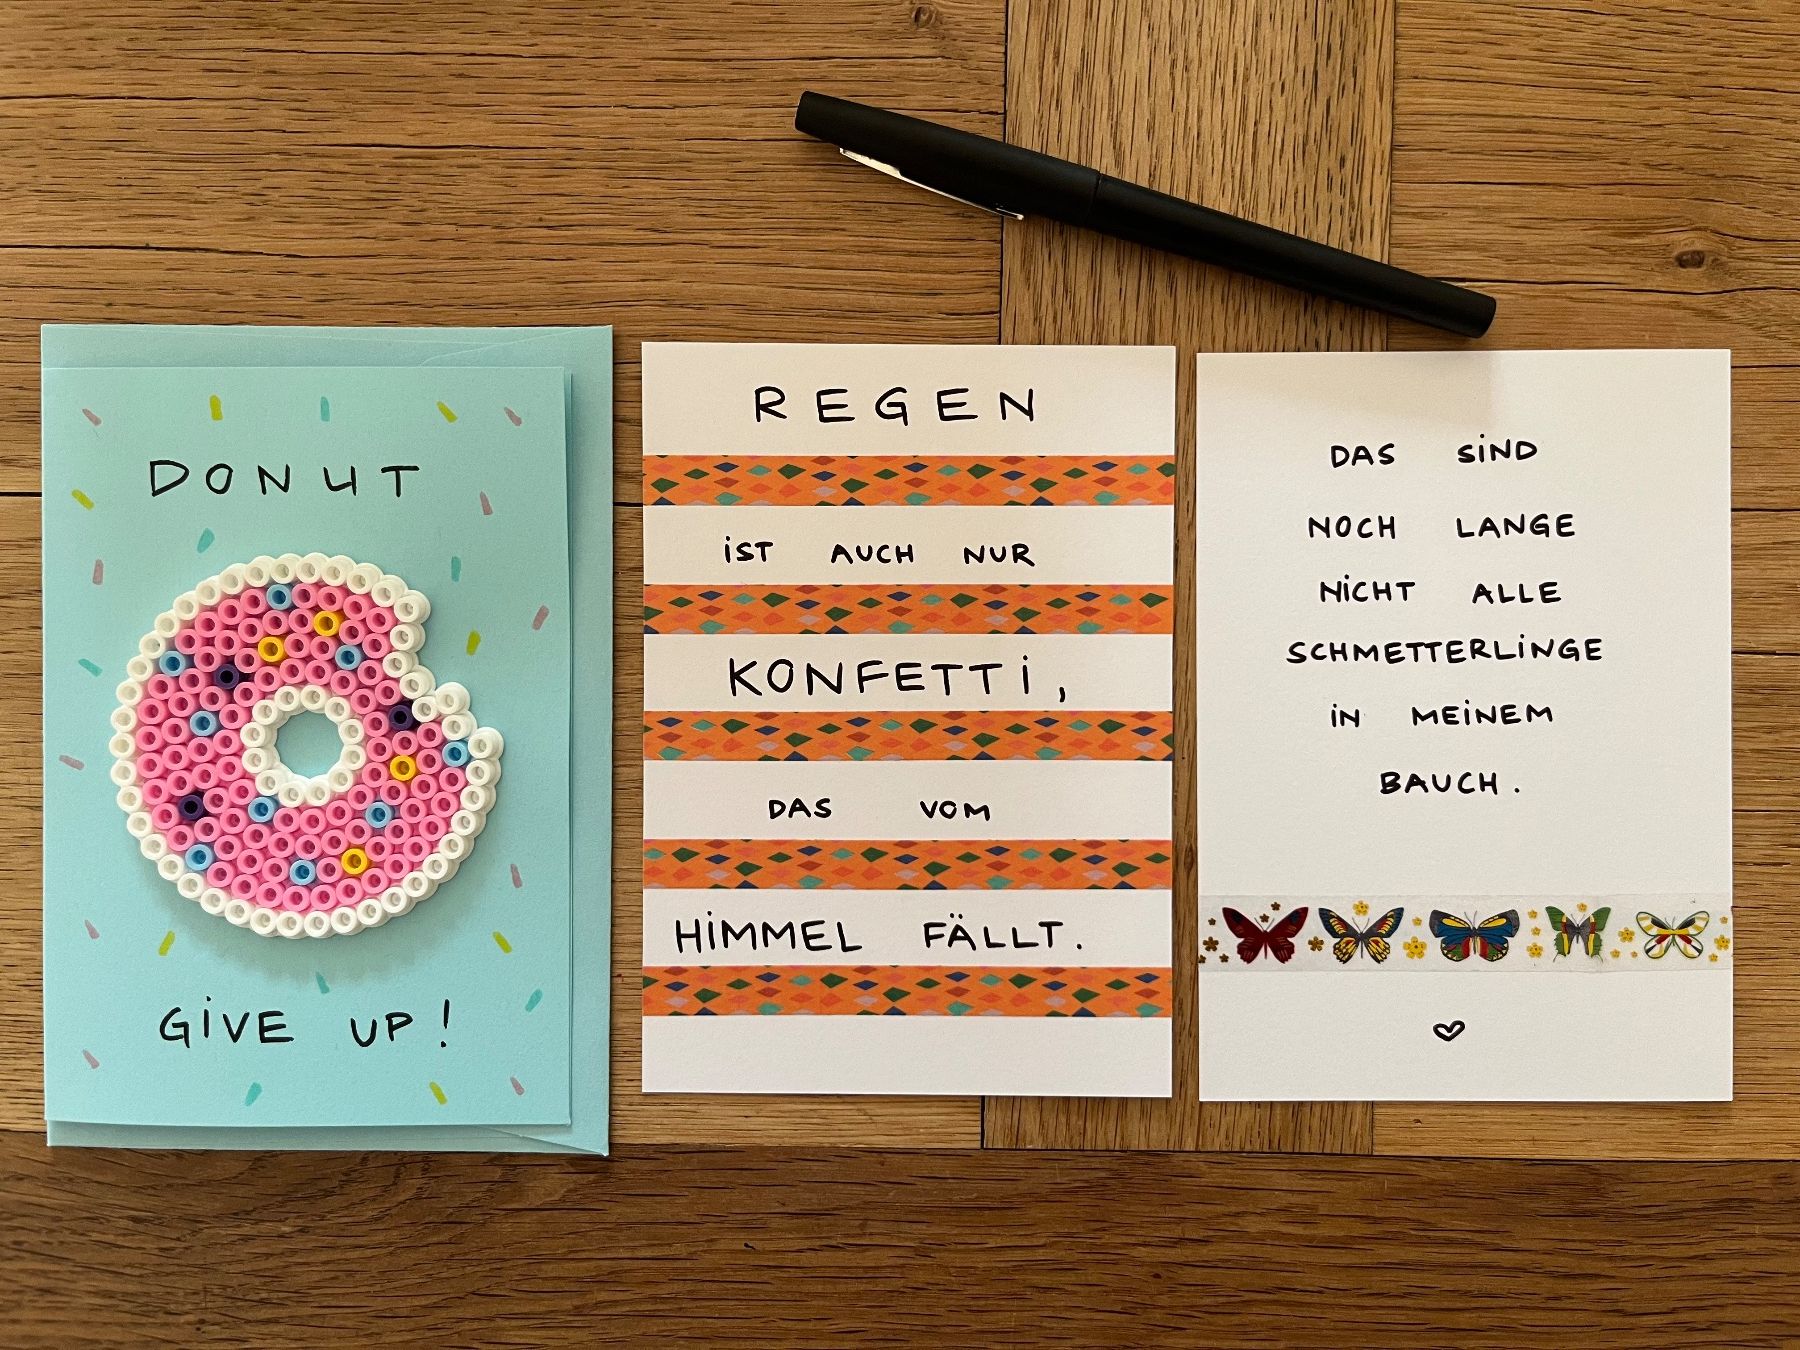 DONUT
GiVE UP!
REGEN
iST AUCH NUR
KONFETTi,
DAS VOM
HiMMEL FÄLLT.
DAS SiND
NOCH LANGE
NiCHT ALLE
SCHMETTERLiNGE
iN MEiNEM
BAUCH.